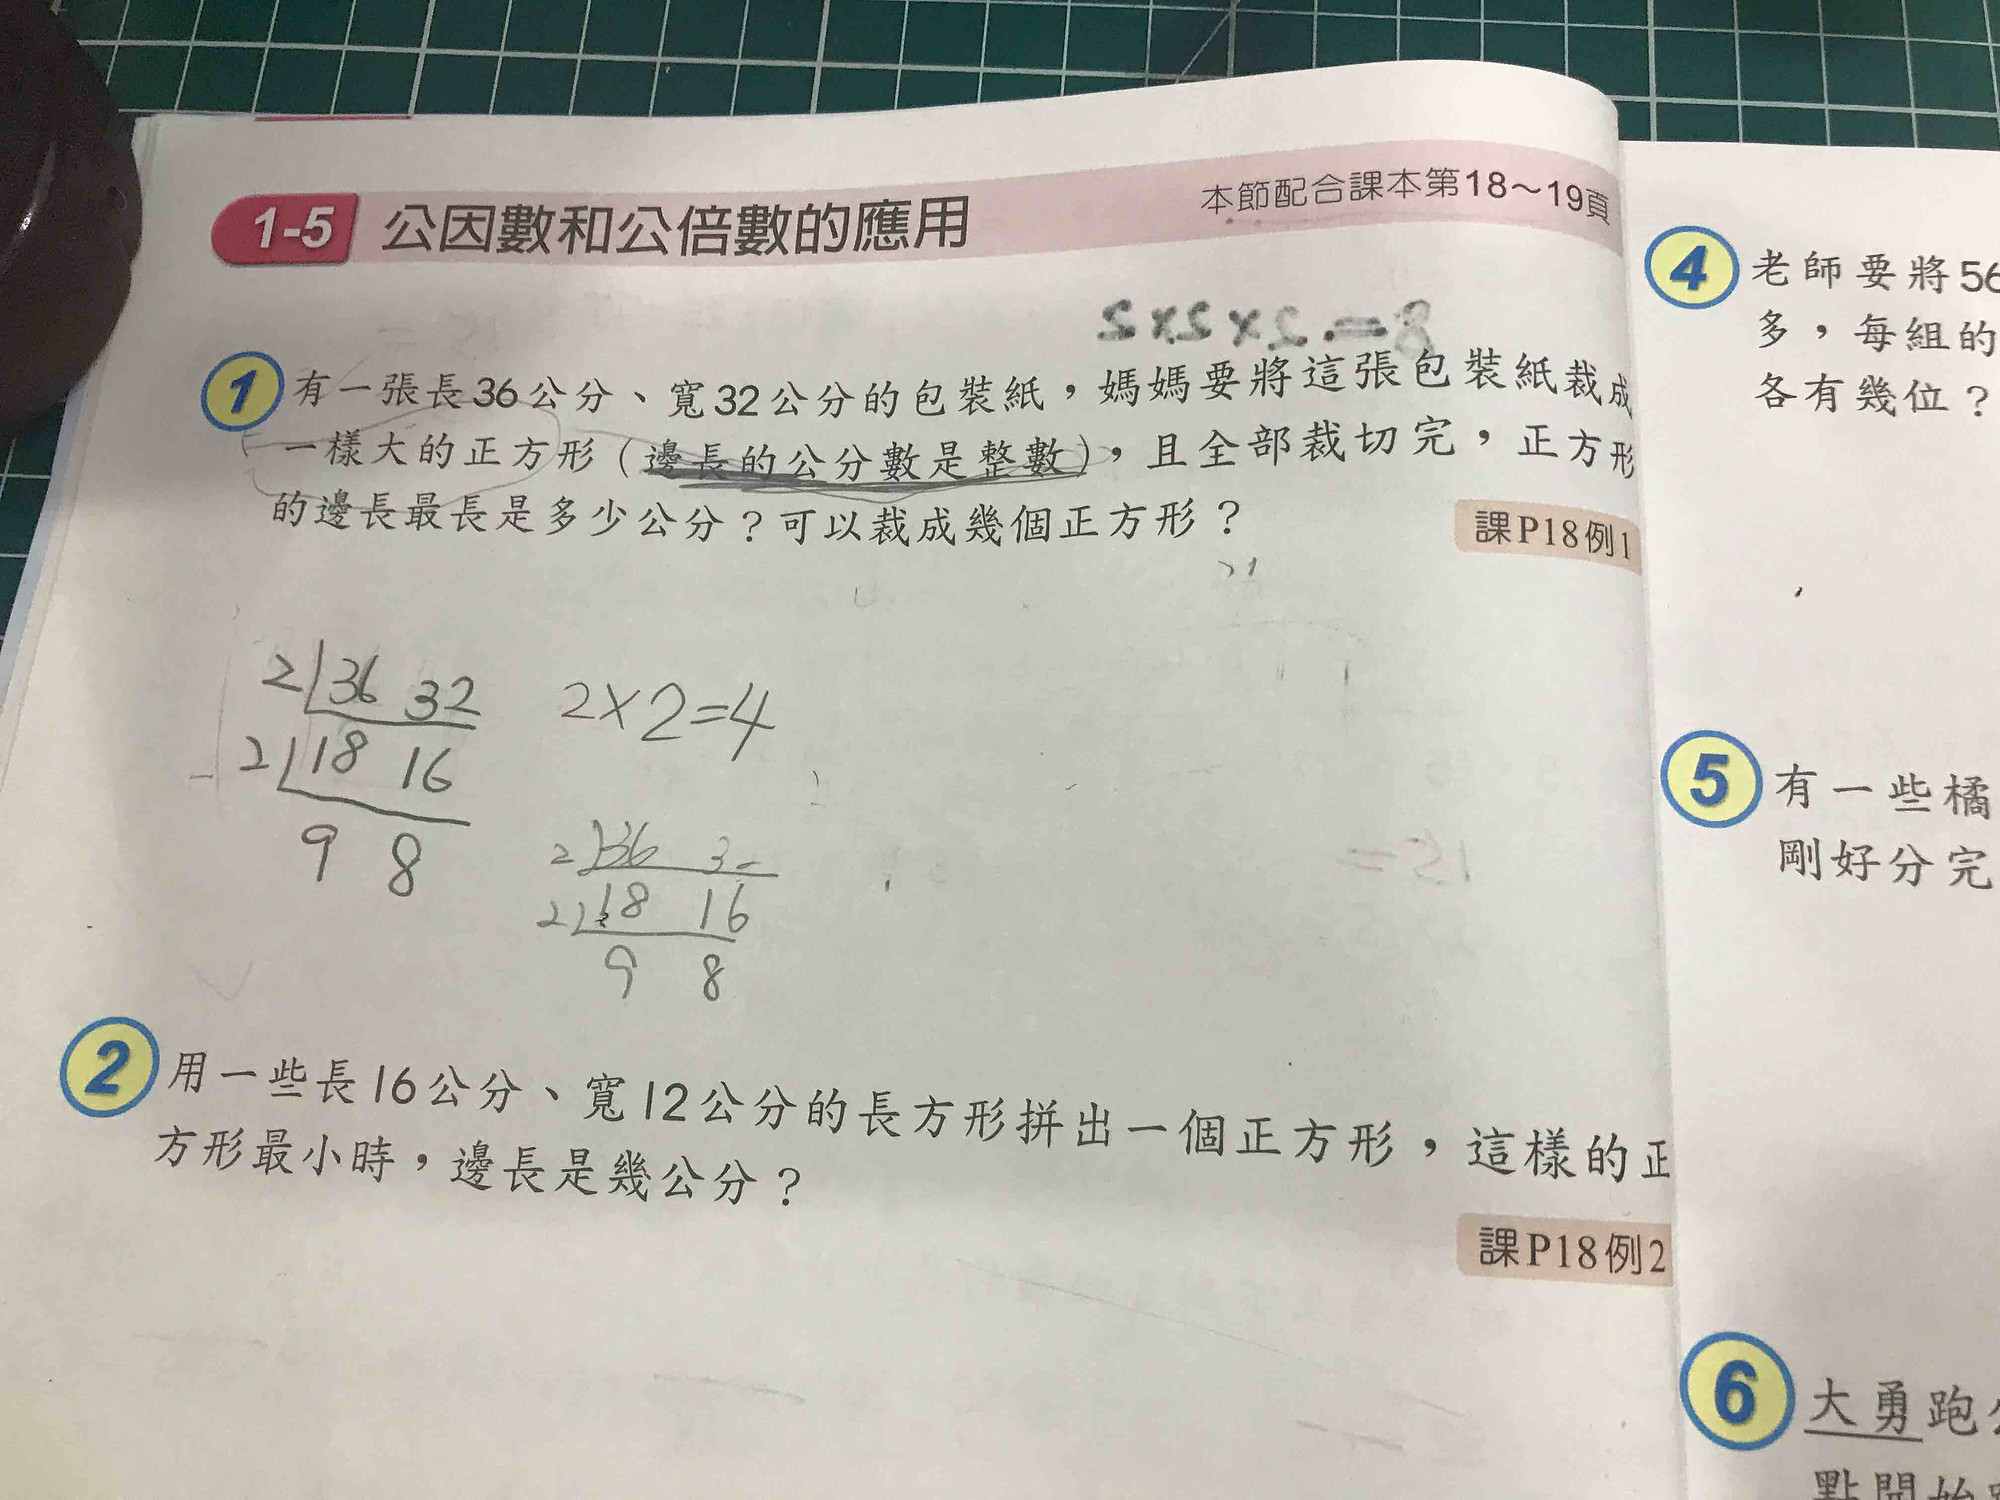 1-5 公因數和公倍數的應用
本節配合課本第18～19頁
8=2×2×2
1 有一張長36公分、寬32公分的包裝紙，媽媽要將這張包裝紙裁成
一樣大的正方形（邊長的公分數是整數），且全部裁切完，正方形
的邊長最長是多少公分？可以裁成幾個正方形？
課P18例1
2 36 32
2 18 16
9 8
2×2=4
2 36 32
2 18 16
9 8
15=
2 用一些長16公分、寬12公分的長方形拼出一個正方形，這樣的正
方形最小時，邊長是幾公分？
課P18例2
4 老師要將56
多，每組的
各有幾位？
5 有一些橘
剛好分完
6 大勇跑
點開始